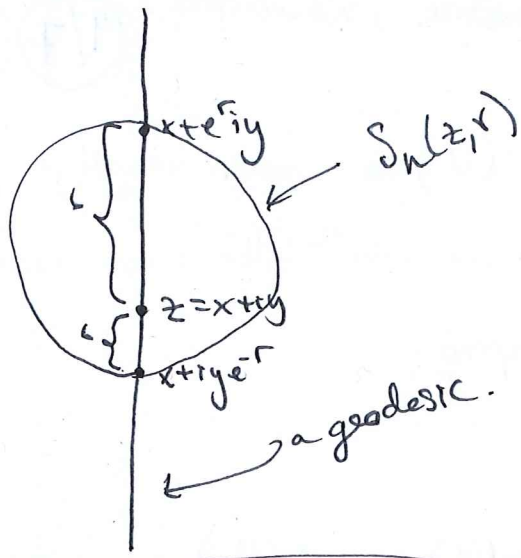 x+e^r iy
S_h(z,r)
r
z=x+iy
r
x+iye^-r
a geodesic.